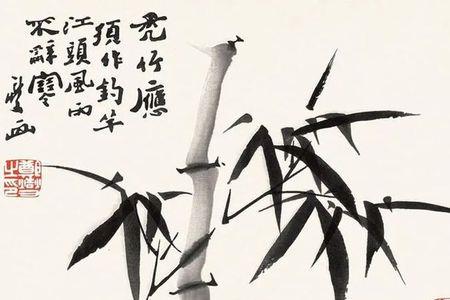 禿竹應
須作釣竿
江頭風雨
不辭寒